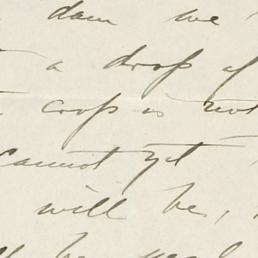 dam we
a drop of
crop is not
cannot yet
will be,
be